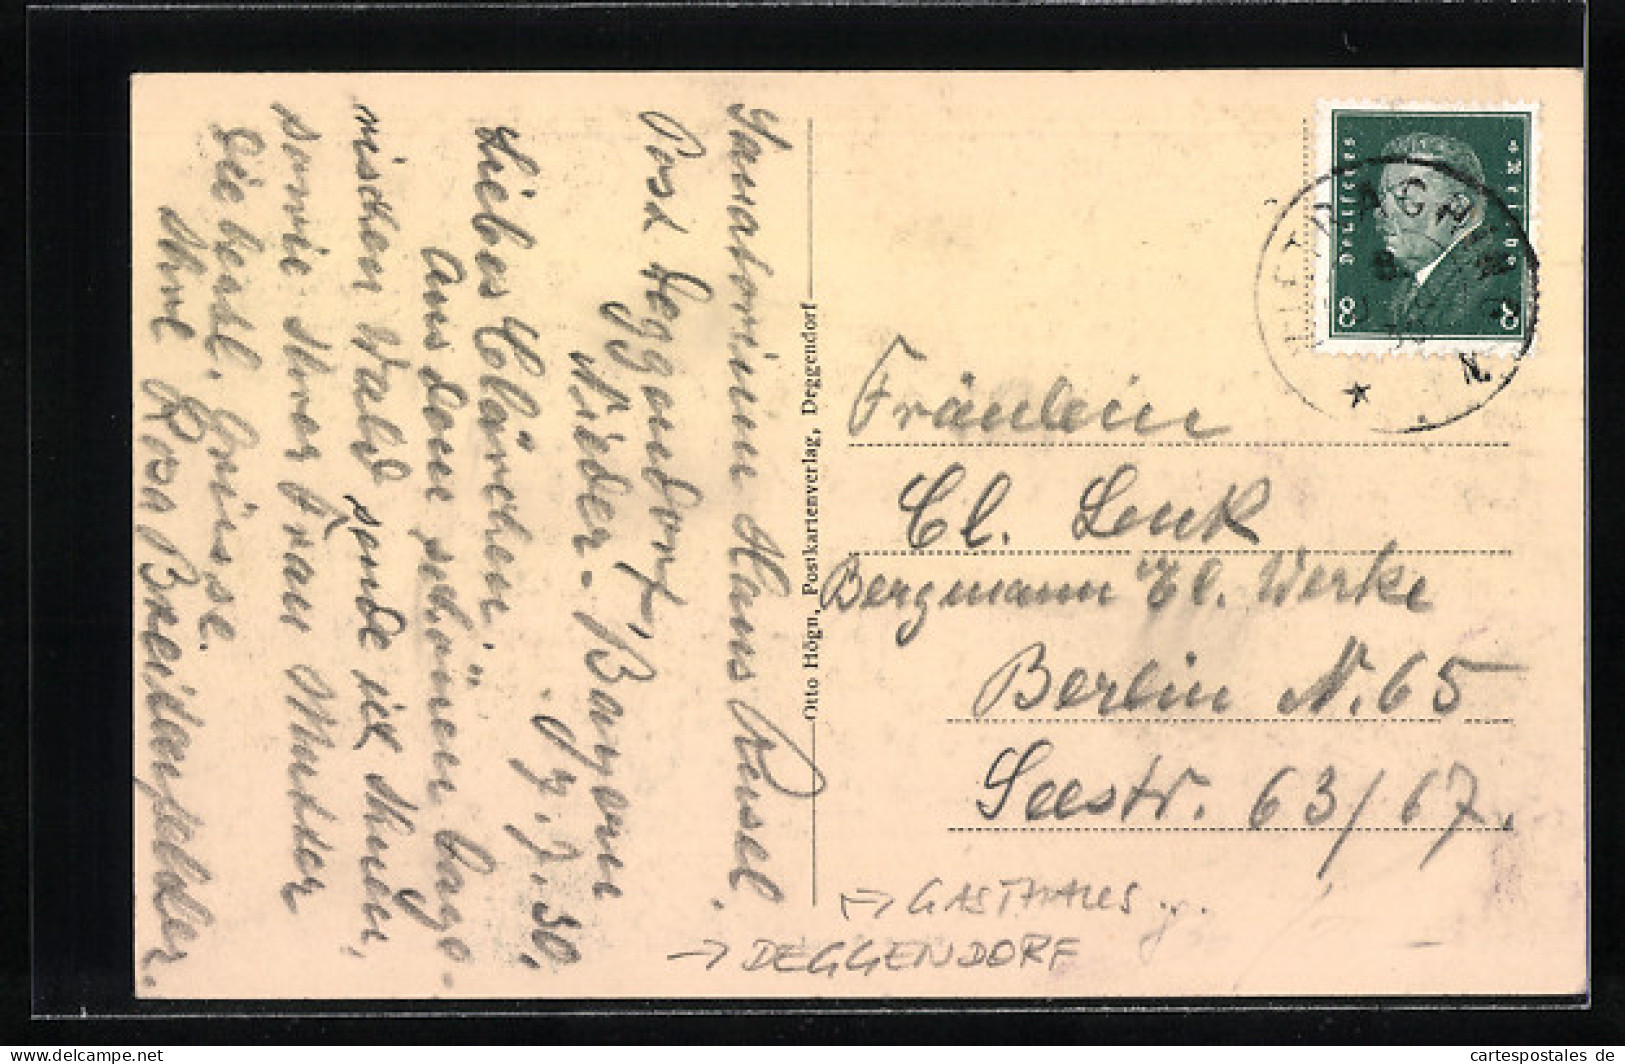 Sanatorium Haus Rusel.
Post Deggendorf
Nieder-Bayern
9.7.30.
Liebes Clärchen!
Aus dem schönen baye-
rischen Wald sende ich Ihnen,
sowie Ihrer Frau Mutter
die herzl. Grüsse.
Ihre Rosa Breidenfelder.
Otto Högn, Postkartenverlag, Deggendorf
Deutsches Reich
8 8
Fräulein
Cl. Lenk
Bergmann El. Werke
Berlin N. 65
Seestr. 63/67.
→ GASTHAUS
→ DEGGENDORF
cartespostales de